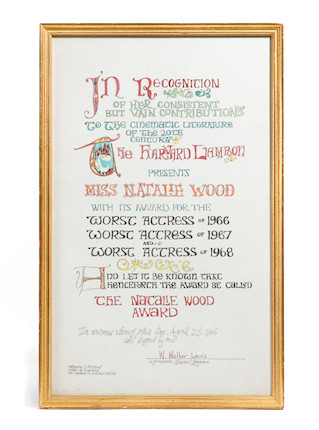 In Recognition
of her consistent
but vain contributions
to the cinematic literature
of the 20th
century
The Harvard Lampoon
presents
Miss Natalie Wood
with its award for the
Worst Actress of 1966
Worst Actress of 1967
and
Worst Actress of 1968
And let it be known that
henceforth the award be called
The Natalie Wood
Award
In witness whereof this day, April 23, 1966
and signed by me
W. Walker Lewis